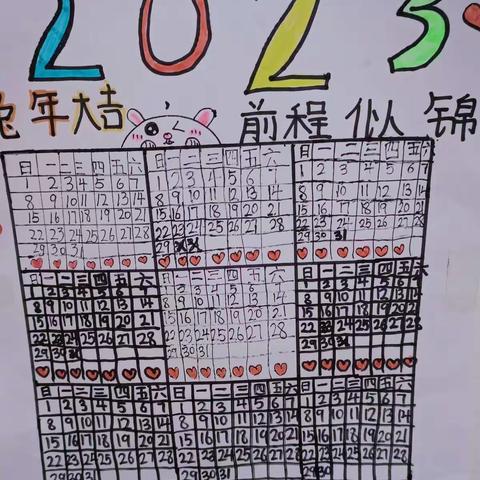 2023
兔年大吉
前程似锦
日一二三四五六
1 2 3 4 5 6 7
8 9 10 11 12 13 14
15 16 17 18 19 20 21
22 23 24 25 26 27 28
29 30 31
日一二三四五六
1 2 3 4 5 6 7
8 9 10 11 12 13 14
15 16 17 18 19 20 21
22 23 24 25 26 27 28
29
日一二三四五六
1 2 3 4 5 6 7
8 9 10 11 12 13 14
15 16 17 18 19 20 21
22 23 24 25 26 27 28
29 30 31
日一二三四五六
1 2 3 4 5 6 7
8 9 10 11 12 13 14
15 16 17 18 19 20 21
22 23 24 25 26 27 28
29 30 31
日一二三四五六
1 2 3 4 5 6 7
8 9 10 11 12 13 14
15 16 17 18 19 20 21
22 23 24 25 26 27 28
29 30 31
日一二三四五六
1 2 3 4 5 6
8 9 10 11 12 13 14
15 16 17 18 19 20 21
22 23 24 25 26 27 28
29 30 31
日一二三四五六
1 2 3 4 5 6 7
8 9 10 11 12 13 14
15 16 17 18 19 20 21
22 23 24 25 26 27 28
29 30 31
日一二三四五六
1 2 3 4 5 6 7
8 9 10 11 12 13 14
15 16 17 18 19 20 21
22 23 24 25 26 27 28
29 30 31
日一二三四五六
1 2 3 4 5 6 7
8 9 10 11 12 13 14
15 16 17 18 19 20 21
22 23 24 25 26 27 28
29 30